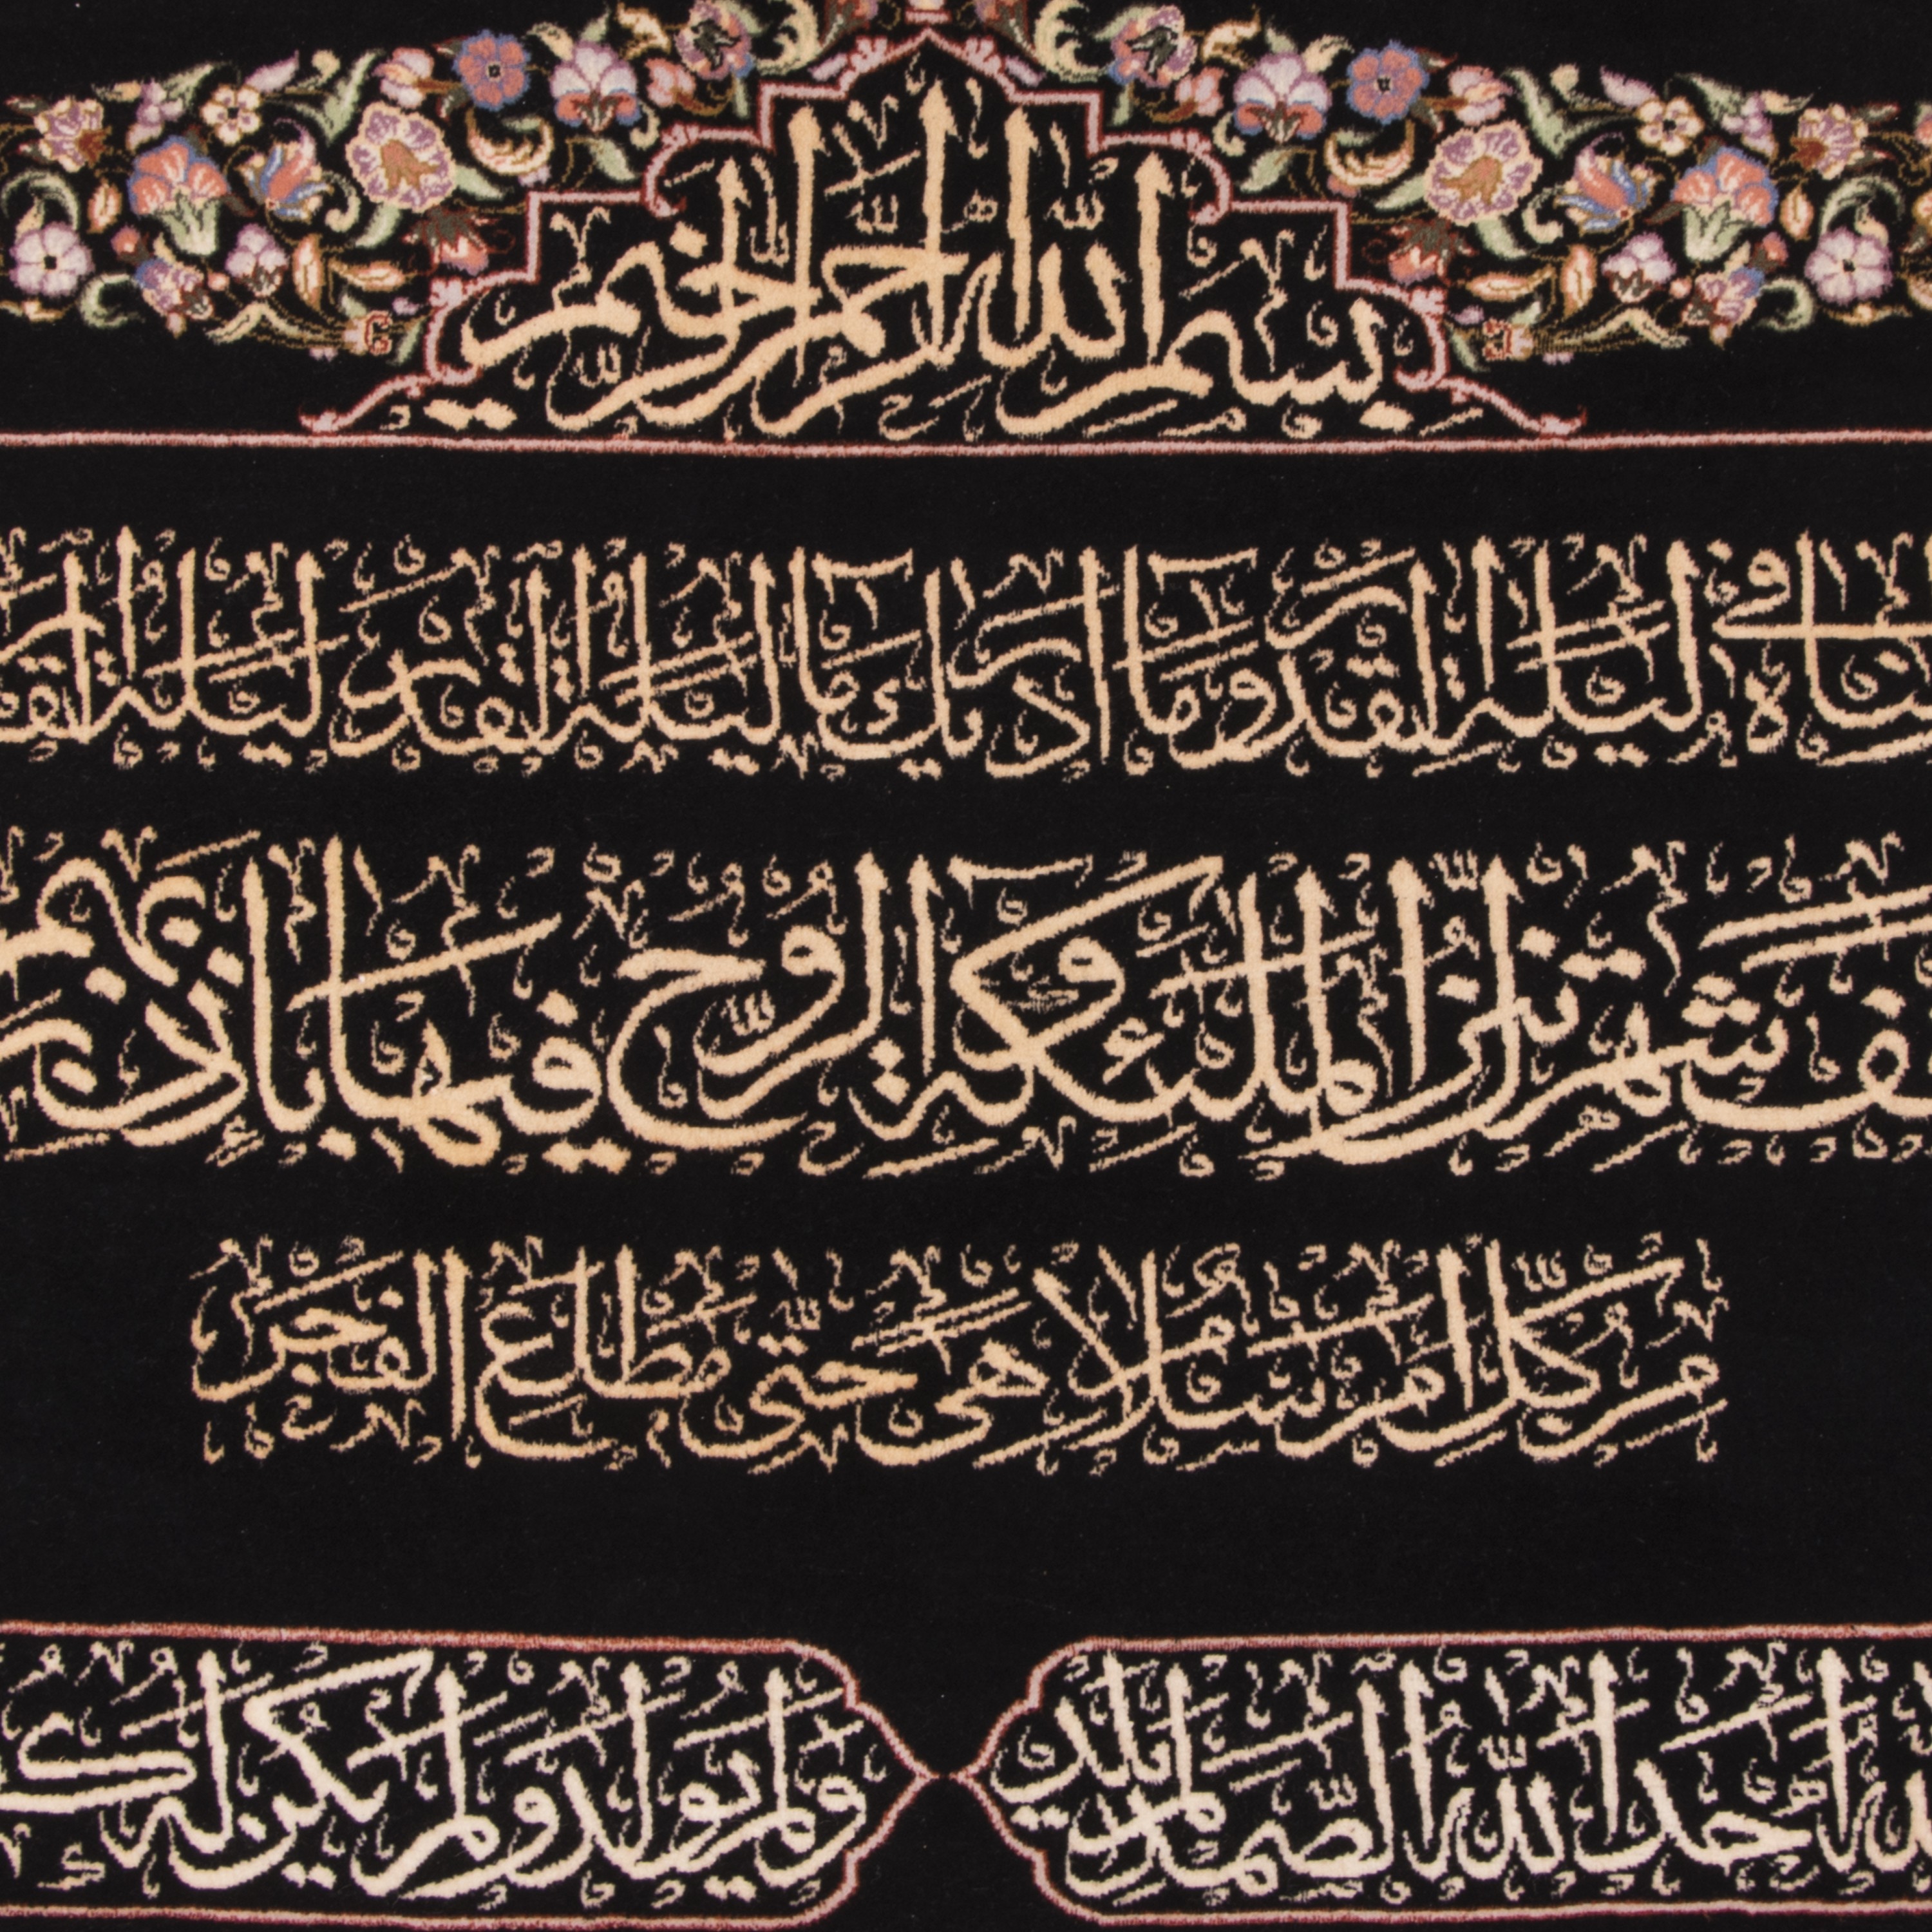 بسم الله الرحمن الرحيم
في ليلة القدر وما ادريك ما ليلة القدر ليلة
شهر تنزل الملئكة و الروح فيها باذن
من كل امر سلام هي حتى مطلع الفجر
احد الله الصمد لم يلد
ولم يولد ولم يكن له